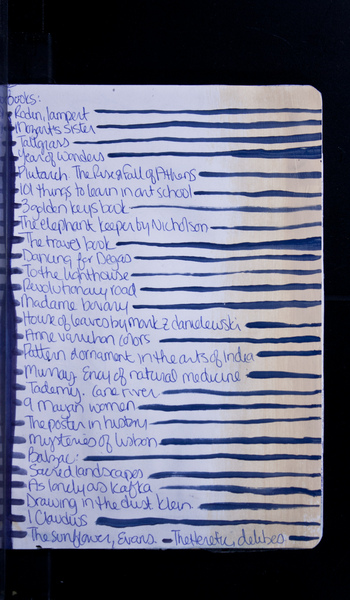 books:
Rodin, lampert
Mozart's Sister
Tallgrass
Year of wonders
Plutarch The Rise & Fall of Athens
101 things to learn in art school
3 golden keys book
The elephant keeper by Nicholson
The travel book
Dancing for Degas
To the lighthouse
Revolutionary road
Madame bovary
House of leaves by mark z danielewski
Anne varichon colors
Pattern & ornament in the arts of India
Murray Ency of natural medicine
Tademy. Cane river
9 mayan women
The poster in history
Mysteries of lisbon
Balzac
Sacred landscapes
As lonely as Kafka
Drawing in the dust Klein
I Claudius
The sunflower, Evans. The Heretic, delibes.